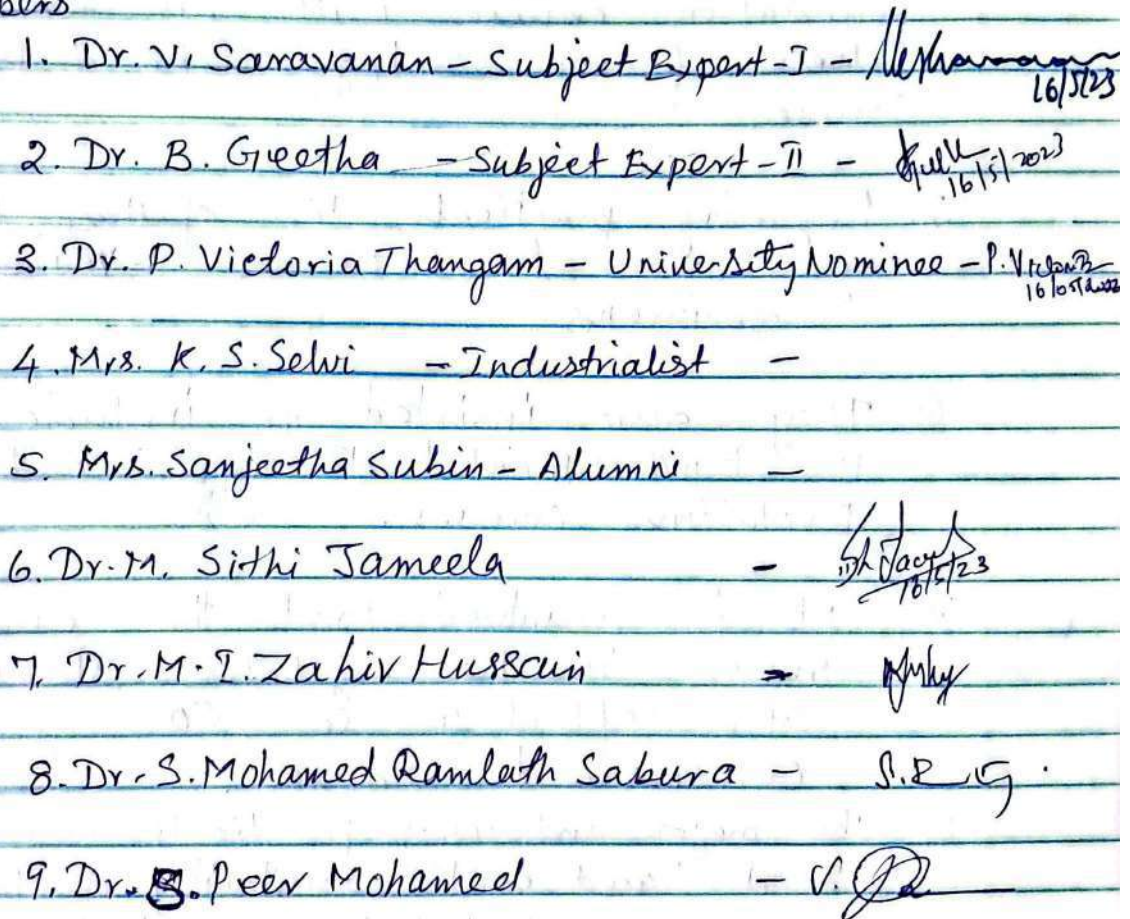 1. Dr. V. Saravanan - Subject Expert - I - 16/5/23
2. Dr. B. Geetha - Subject Expert - II - 16/5/2023
3. Dr. P. Victoria Thangam - University Nominee - P. 16/05/2023
4. Mrs. K. S. Selvi - Industrialist -
5. Mrs. Sanjeetha Subin - Alumni -
6. Dr. M. Sithi Jameela - 16/5/23
7. Dr. M. I. Zahir Hussain -
8. Dr. S. Mohamed Ramlath Sabura - S.R.
9. Dr. S. Peer Mohamed -